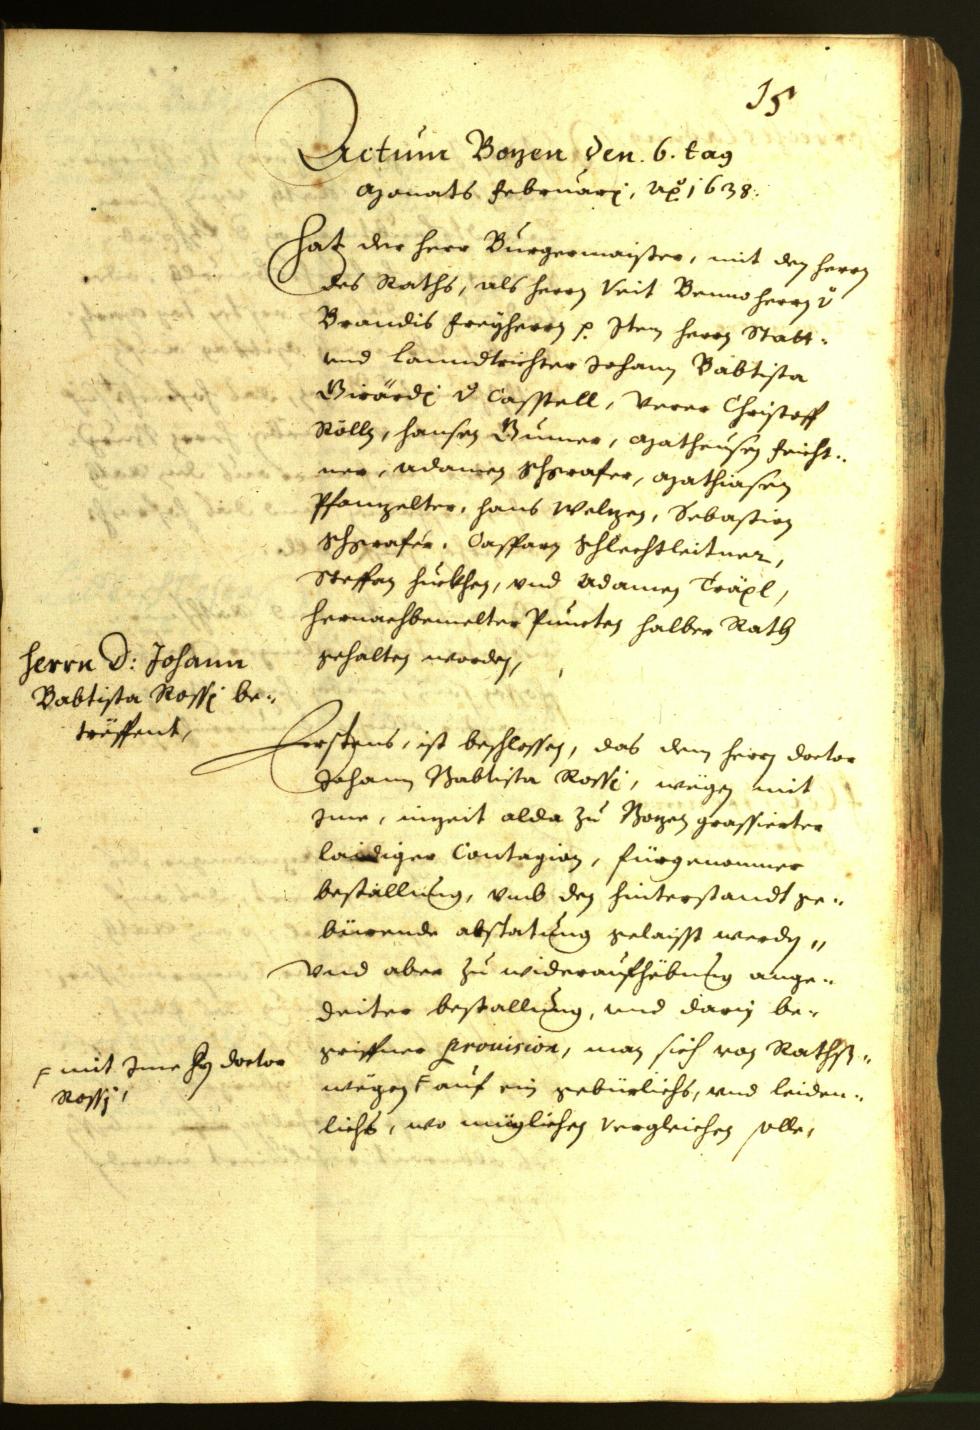 15
Actum Bozen den. 6. tag
Monats Februarj, Ao 1638.
Hat der herr Burgermaister, mit den herrn
des Raths, als herrn Veit Benno herrn v
Brandis Freyherrn p. Item herrn Statt-
und Lanndtrichter Johann Babtista
Girardj v Casstell, Verer Christoff
Rölln, Hansen Gumer, Matheusen Feicht-
ner, Adamen Schgrafer, Mathiasen
Pfanzelter, Hans Welzen, Sebastian
Schgrafer, Casparn Schlechtleitner,
Steffan Huekhen, vnd Adamen Träxl,
hernachbemelter Puncten halber Rath
gehalten worden,
Herrn D: Johann
Babtista Rossj be-
treffent,
Erstens, ist beschlossen, das dem herrn doctor
Johann Babtista Rossi, wegen mit
Ime, inzeit alda zu Bozen grassierter
laidiger Contagion, fürgenomner
bestallung, vmb den hinterstandt ge-
bürende abstatung gelaisst werden,,
Vnd aber zu widerauffhebung ange-
deiter bestallung, vnd darin be-
griffner provision, man sich von Raths-
wegen F auf ein gebürlichs, vnd leiden-
lichs, wo müglichen vergleichen solle,
F mit Ime Hn doctor
Rossj,